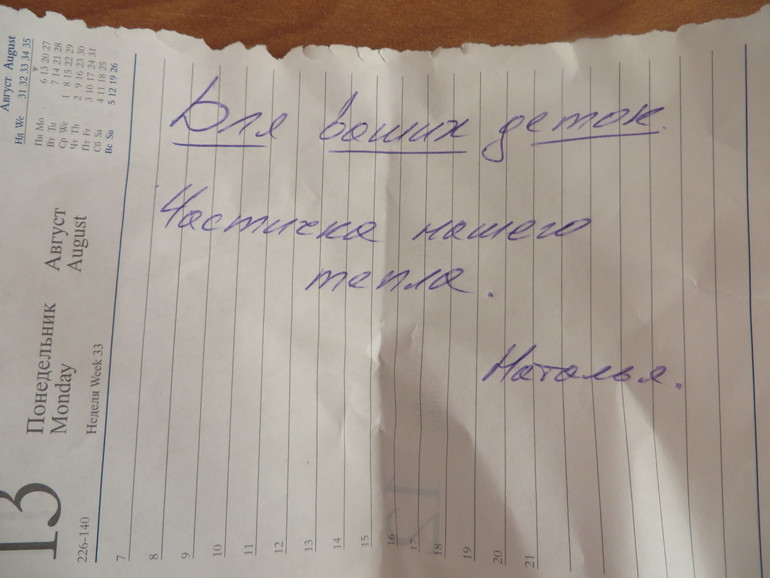 Для ваших деток.
Частичка нашего
тепла.
Наталья.
13
Понедельник
Monday
Август
August
226-140
Неделя Week 33
Август August
Нд We 31 32 33 34 35
Пн Mo 6 13 20 27
Вт Tu 7 14 21 28
Ср We 1 8 15 22 29
Чт Th 2 9 16 23 30
Пт Fr 3 10 17 24 31
Сб Sa 4 11 18 25
Вс Su 5 12 19 26
7
8
9
10
11
12
13
14
15
16
17
18
19
20
21